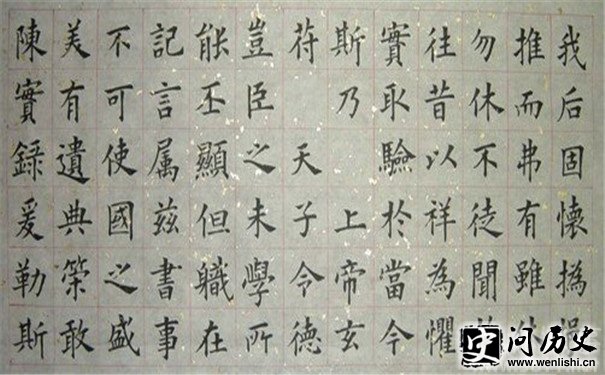 我后固懷撝
推而弗有雖
勿休不徒聞
往昔以祥為懼
實取驗於當今
斯乃 上帝玄
苻 天子令德
豈臣之末學所
能丕顯但軄在
記言属茲書事
不可使國之盛
美有遺典策敢
陳實錄爰勒斯
史 问历史
www.wenlishi.cn